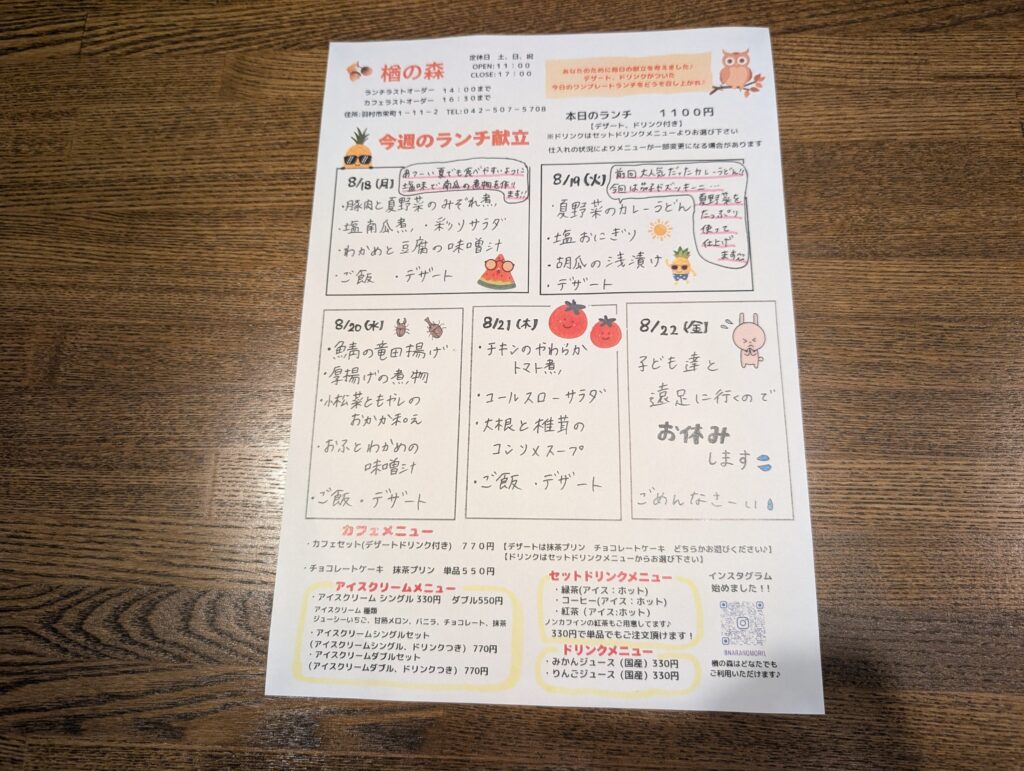 楢の森
定休日 土、日、祝
OPEN:11:00
CLOSE:17:00
ランチラストオーダー 14:00まで
カフェラストオーダー 16:30まで
住所:羽村市栄町1-11-2 TEL:042-507-5708
あなたのために毎日の献立を考えました♪
デザート、ドリンクがついた
今日のワンプレートランチをどうぞ召し上がれ♪
本日のランチ 1100円
【デザート、ドリンク付き】
※ドリンクはセットドリンクメニューよりお選び下さい
仕入れの状況によりメニューが一部変更になる場合があります
今週のランチ献立
8/18(月)
あつーい夏でも食べやすいように
塩味で南瓜の煮物を作り
ます!!
・豚肉と夏野菜のみぞれ煮
・塩南瓜煮 ・彩りサラダ
・わかめと豆腐の味噌汁
・ご飯 ・デザート
8/19(火)
前回大人気だったカレーうどん!!
今回は茄子やズッキーニ…
夏野菜を
たっぷり
使って
仕上げ
ます!!
・夏野菜のカレーうどん
・塩おにぎり
・胡瓜の浅漬け
・デザート
8/20(水)
・鯖の竜田揚げ
・厚揚げの煮物
・小松菜ともやしの
おかか和え
・おふとわかめの
味噌汁
・ご飯 ・デザート
8/21(木)
・チキンのやわらか
トマト煮
・コールスローサラダ
・大根と椎茸の
コンソメスープ
・ご飯 ・デザート
8/22(金)
子ども達と
遠足に行くので
お休み
します
ごめんなさーい
カフェメニュー
・カフェセット(デザートドリンク付き) 770円 【デザートは抹茶プリン チョコレートケーキ どちらかお選びください♪】
【ドリンクはセットドリンクメニューからお選び下さい】
・チョコレートケーキ 抹茶プリン 単品550円
アイスクリームメニュー
・アイスクリーム シングル330円 ダブル550円
アイスクリーム 種類
ジューシーいちご、甘熟メロン、バニラ、チョコレート、抹茶
・アイスクリームシングルセット
(アイスクリームシングル、ドリンクつき) 770円
・アイスクリームダブルセット
(アイスクリームダブル、ドリンクつき) 770円
セットドリンクメニュー
・緑茶(アイス:ホット)
・コーヒー(アイス:ホット)
・紅茶(アイス:ホット)
ノンカフェインの紅茶もご用意してます♪
330円で単品でもご注文頂けます!
ドリンクメニュー
・みかんジュース(国産)330円
・りんごジュース(国産)330円
インスタグラム
始めました!!
@NARANOMORI_
楢の森はどなたでも
ご利用いただけます♪